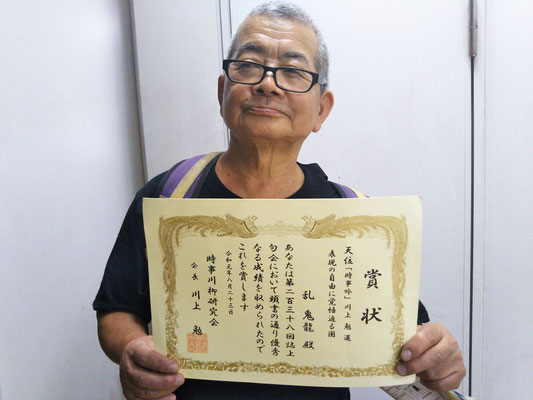 賞状
天位「時事吟」川上 勉 選
表現の自由に覚悟迫る国
乱 鬼龍 殿
あなたは第二百三十八回誌上
句会において頭書の通り優秀
なる成績を収められたので
これを賞します
令和元年八月二十三日
時事川柳研究会
会長 川上 勉